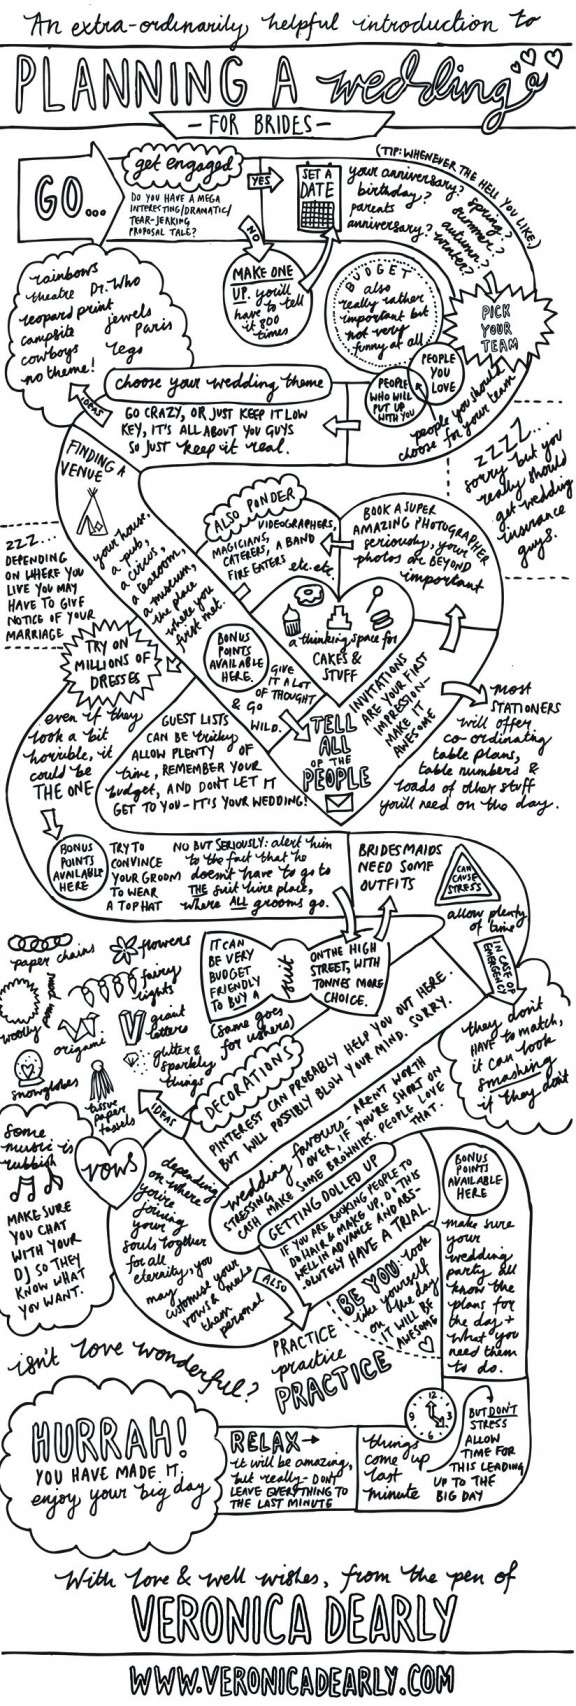 An extra-ordinarily helpful introduction to
PLANNING A wedding
- FOR BRIDES -
GO...
get engaged
DO YOU HAVE A MEGA
INTERESTING/DRAMATIC/
TEAR-JERKING
PROPOSAL TALE?
YES
NO
MAKE ONE
UP. you'll
have to tell
it 800
times
SET A
DATE
(TIP: WHENEVER THE HELL YOU LIKE)
your anniversary? spring?
birthday? summer?
parents autumn?
anniversary? winter?
PICK
YOUR
TEAM
BUDGET
also
really rather
important but
not very
funny at all
PEOPLE
YOU
LOVE
PEOPLE
WHO WILL
PUT UP
WITH YOU
people you should
choose for your team
choose your wedding theme
GO CRAZY, OR JUST KEEP IT LOW
KEY, IT'S ALL ABOUT YOU GUYS
SO JUST keep it real.
IDEAS
rainbows
theatre Dr. Who
leopard print
jewels
campsite Paris
cowboys legs
no theme!
zzzz...
sorry but you
really should
get wedding
insurance
guys.
FINDING A
VENUE
your house,
a pub,
a circus,
a tearoom,
a museum,
the place
where you
first met.
zzz...
DEPENDING
ON WHERE YOU
LIVE YOU MAY
HAVE TO GIVE
NOTICE OF YOUR
MARRIAGE
ALSO PONDER
VIDEOGRAPHERS,
MAGICIANS,
CATERERS, A BAND
FIRE EATERS etc. etc.
BOOK A SUPER
AMAZING PHOTOGRAPHER
seriously, your
photos are BEYOND
important
a thinking space for
CAKES &
STUFF
BONUS
POINTS
AVAILABLE
HERE.
GIVE
IT A LOT
OF THOUGHT
& GO
WILD.
TELL
ALL
OF THE
PEOPLE
INVITATIONS
ARE YOUR FIRST
IMPRESSION-
MAKE IT
AWESOME
most
STATIONERS
will offer
co-ordinating
table plans,
table numbers &
loads of other stuff
you'll need on the day.
TRY ON
MILLIONS OF
DRESSES
even if they
look a bit
horrible, it
could be
THE ONE
GUEST LISTS
CAN BE tricky
ALLOW PLENTY OF
time, REMEMBER YOUR
budget, AND DON'T LET IT
GET TO YOU - IT'S YOUR WEDDING!
BONUS
POINTS
AVAILABLE
HERE
TRY TO
CONVINCE
YOUR GROOM
TO WEAR
A TOP HAT
NO BUT SERIOUSLY: alert him
to the fact that he
doesn't have to go to
THE suit hire place,
where ALL grooms go.
BRIDESMAIDS
NEED SOME
OUTFITS
CAN
CAUSE
STRESS
allow plenty
of time
IN CASE OF
EMERGENCY
they don't
HAVE to match,
it can look
smashing
if they don't
IT CAN
BE VERY
BUDGET
FRIENDLY
TO BUY A
suit
ON THE HIGH
STREET, WITH
TONNES MORE
CHOICE.
(same goes
for ushers)
paper chains
flowers
fairy
lights
woolly
origami
giant
letters
glitter &
sparkly
things
snowglobes
tissue
paper
tassels
IDEAS
DECORATIONS
PINTEREST CAN PROBABLY HELP YOU OUT HERE.
BUT WILL POSSIBLY BLOW YOUR MIND. SORRY.
wedding favours - AREN'T WORTH
STRESSING OVER, IF YOU'RE SHORT ON
CASH MAKE SOME BROWNIES. PEOPLE LOVE
THAT.
GETTING DOLLED UP
IF YOU ARE BOOKING PEOPLE TO
DO HAIR & MAKE UP, DO THIS
WELL IN ADVANCE AND ABS-
OLUTELY HAVE A TRIAL.
BE YOU: look
like yourself
on the day
IT WILL BE
AWESOME
some
music is
rubbish
MAKE SURE
YOU CHAT
WITH YOUR
DJ SO THEY
KNOW WHAT
YOU WANT.
vows
depending
on where
you're
joining
your
souls together
for all
eternity, you
may
customise your
vows & make
them
personal
ALSO
PRACTICE
practice
PRACTICE
BONUS
POINTS
AVAILABLE
HERE
make sure
your
wedding
party all
know the
plans for
the day +
what you
need them
to do.
isn't love wonderful?
12
3
6
9
BUT DON'T
STRESS
ALLOW
TIME FOR
THIS LEADING
UP TO THE
BIG DAY
things
come up
last
minute
RELAX
it will be amazing,
but really - DON'T
LEAVE EVERYTHING TO
THE LAST MINUTE
HURRAH!
YOU HAVE MADE IT.
enjoy your big day
With love & well wishes, from the pen of
VERONICA DEARLY
WWW.VERONICADEARLY.COM